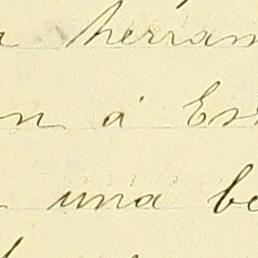 a herram
n á Es
una be